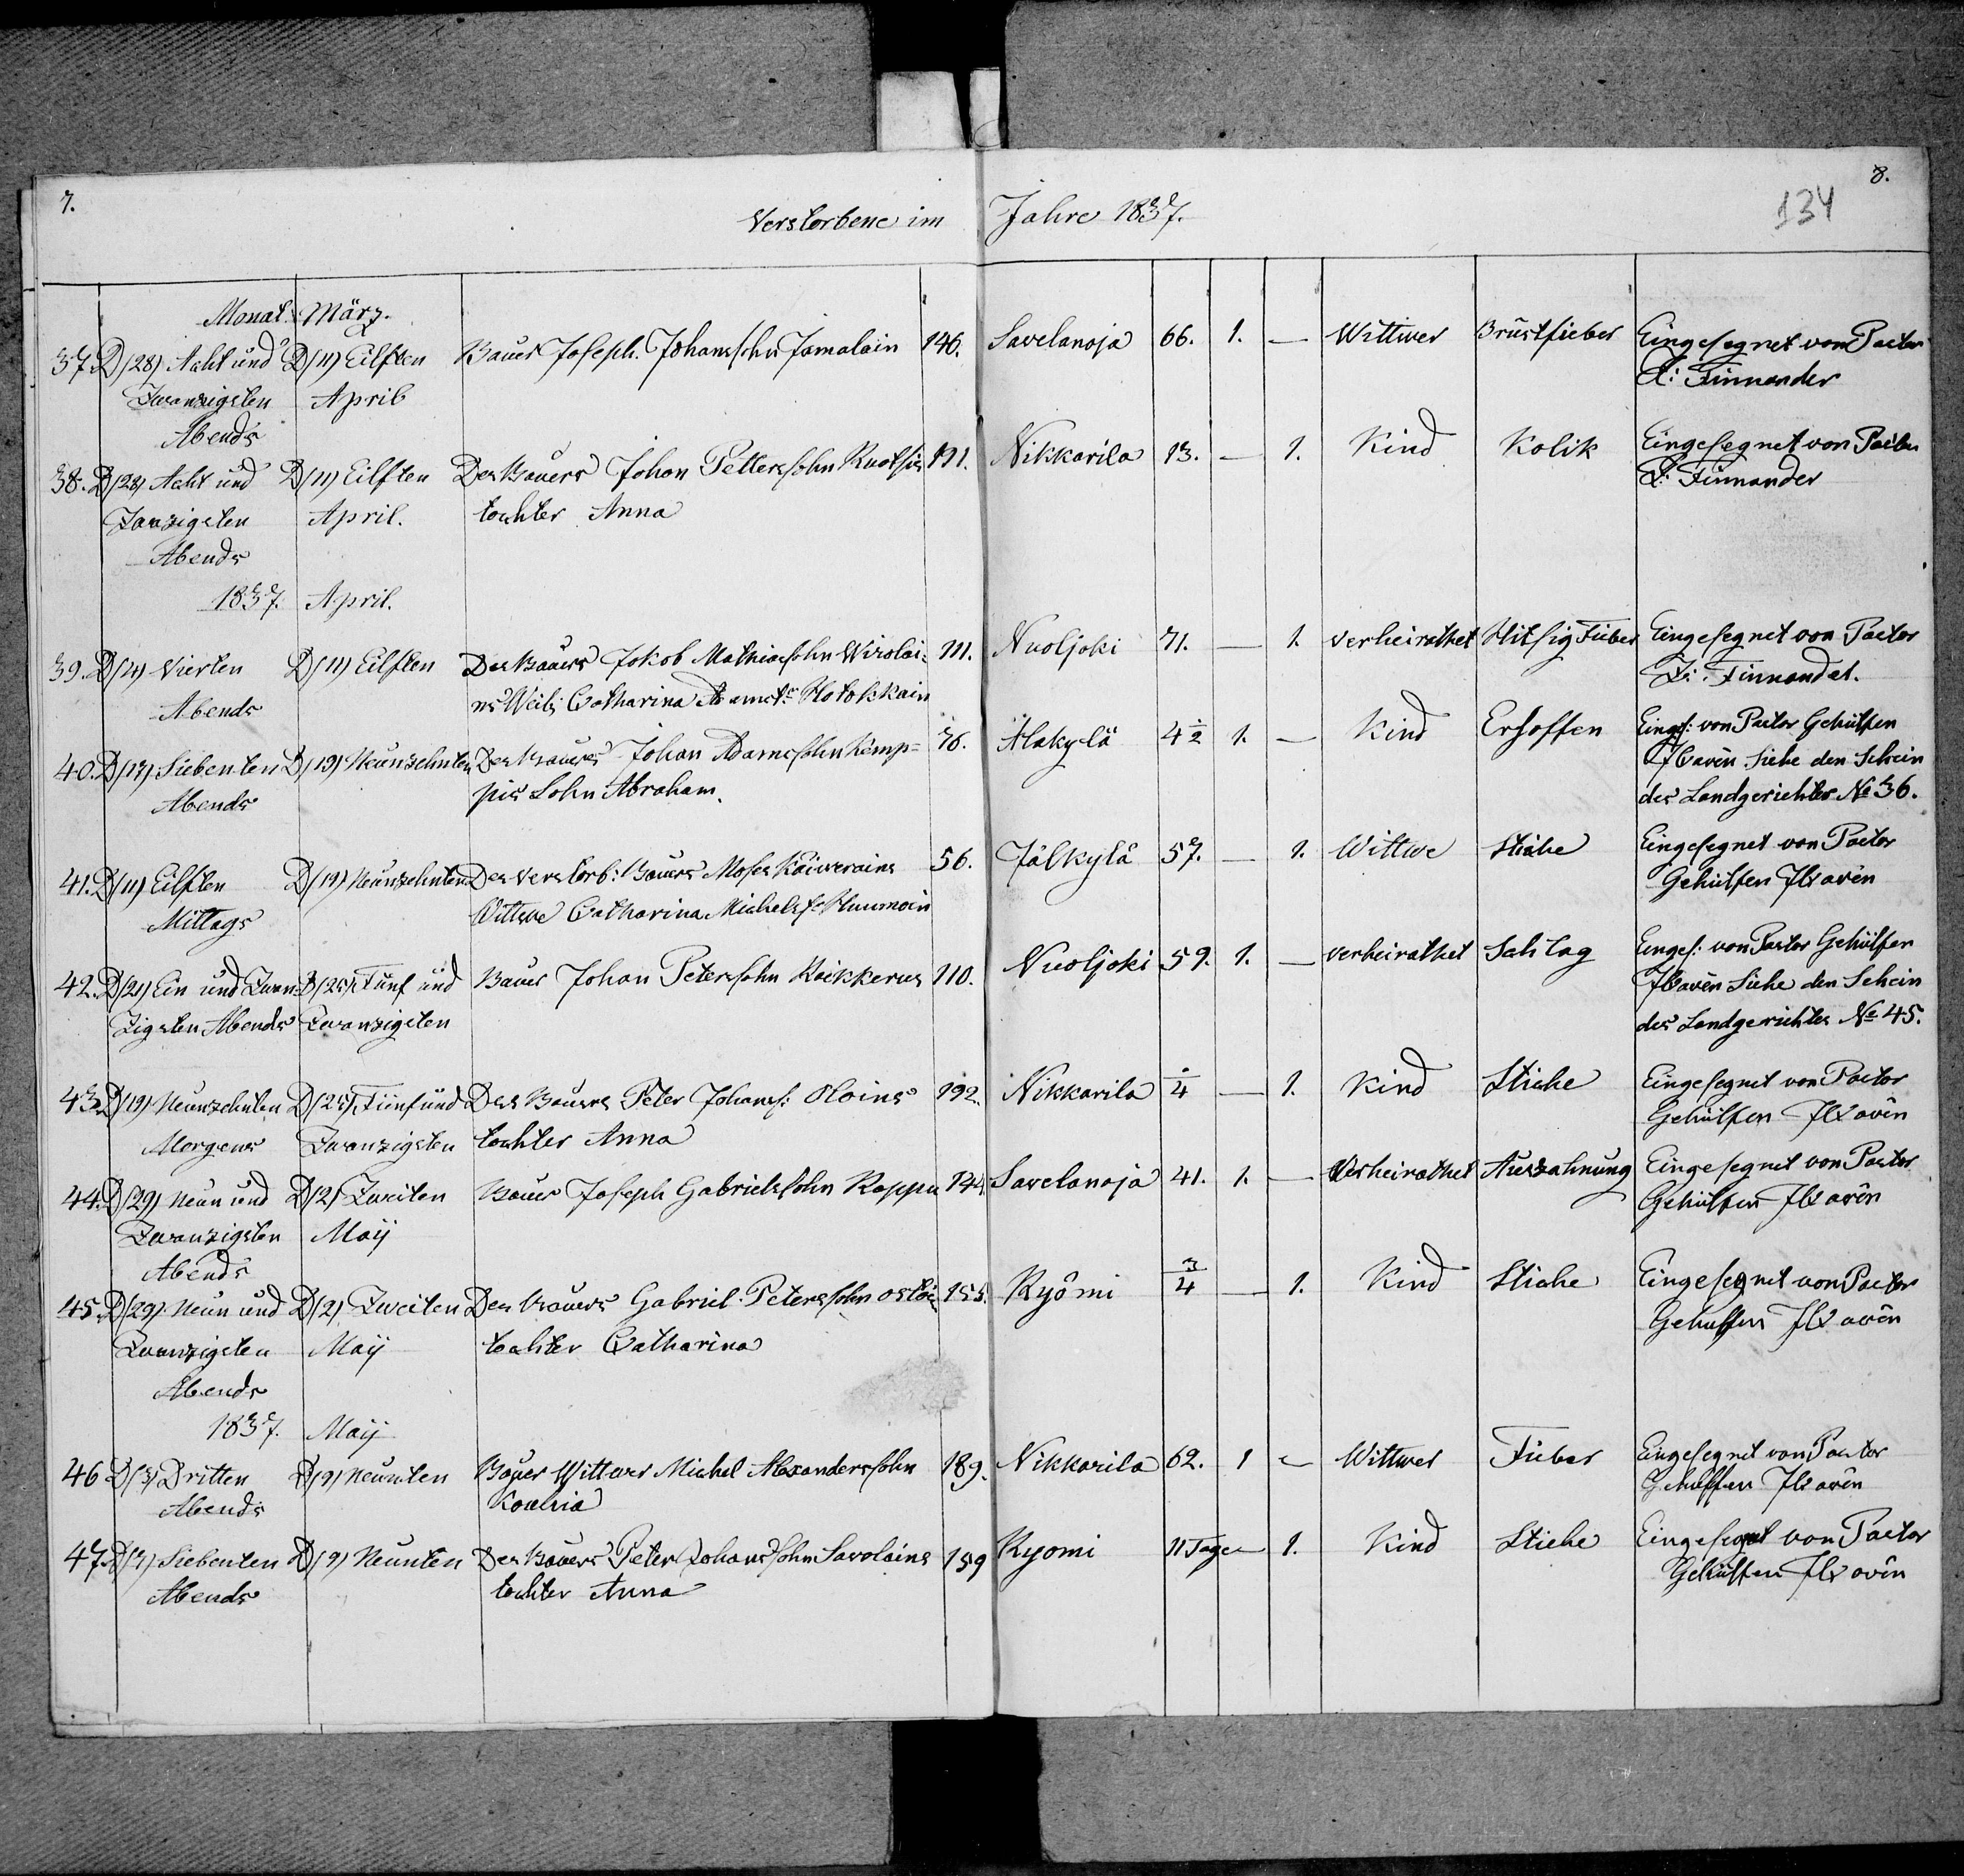 7.
8.
134
Verstorbene im Jahre 1837.
Monat März.
37. D(28) Acht und D(11) Eilften Bauer Joseph Johanssohn Jamalain 146. Savelanoja 66. 1. — Wittwer Brustfieber Eingesegnet von Pastor
Zwanzigsten April Finnander
Abends
38. D(28) Acht und D(11) Eilften Des Bauers Johan Petterssohn 191. Nikkarila 13. — 1. Kind Kolik Eingesegnet von Pastor
Zwanzigsten April. tochter Anna Finnander
Abends
1837. April.
39. D(4) Vierten D(11) Eilften Des Bauers Jakob Mathiassohn Wirolai= 111. Nuoljoki 71. — 1. verheirathet Hitsig Fieber Eingesegnet von Pastor
Abends ns Weib Catharina Adamst. Hotokkain Finnander.
40. D(17) Siebenten D(19) Neunzehnten Des Bauers Johan Adamssohn Kemp= 76. Alakylä 4½ 1. — Kind Ersoffen Einges: von Pastor Gehülfen
Abends pis Sohn Abraham. Ilvavên Siehe den Schein
des Landgerichtes № 36.
41. D(11) Eilften D(19) Neunzehnten Des verstorb: Bauers Moses Käiverains 56. Jälkylä 57. — 1. Wittwe Stiche Eingesegnet von Pastor
Mittags Wittwe Catharina Michelst. Huumoin Gehülfen Ilvavên
42. D(21) Ein und Zwan= D(25) Fünf und Bauer Johan Peterssohn Kaikkerus 110. Nuoljoki 59. 1. — verheirathet Schlag Einges: von Pastor Gehülfen
zigsten Abends Zwanzigsten Ilvavên Siehe den Schein
des Landgerichtes № 45.
43. D(19) Neunzehnten D(25) Fünf und Des Bauers Peter Johans: Oloins 192. Nikkarila ¼ — 1. Kind Stiche Eingesegnet von Pastor
Morgens Zwanzigsten tochter Anna Gehülfen Ilvavên
44. D(29) Neun und D(2) Zweiten Bauer Joseph Gabrielssohn Rappu 144. Savelanoja 41. 1. — Verheirathet Auszahnung Eingesegnet von Pastor
Zwanzigsten Maij Gehülfen Ilvavên
Abends
45. D(29) Neun und D(2) Zweiten Des Bauers Gabriel Peterssohn 155. Kyömi ¾ — 1. Kind Stiche Eingesegnet von Pastor
Zwanzigsten Maij tochter Catharina Gehülfen Ilvavên
Abends
1837. Maij
46 D(3) Dritten D(9) Neunten Bauer Wittwer Michel Alexanderssohn 189. Nikkarila 62. 1 — Wittwer Fieber Eingesegnet von Pastor
Abends Gehülfen Ilvavên
47. D(7) Siebenten D(9) Neunten Des Bauers Peter Johanssohn Savolains 159 Kyomi 11 Tage — 1. Kind Stiche Eingesegnet von Pastor
Abends tochter Anna Gehülfen Ilvavên